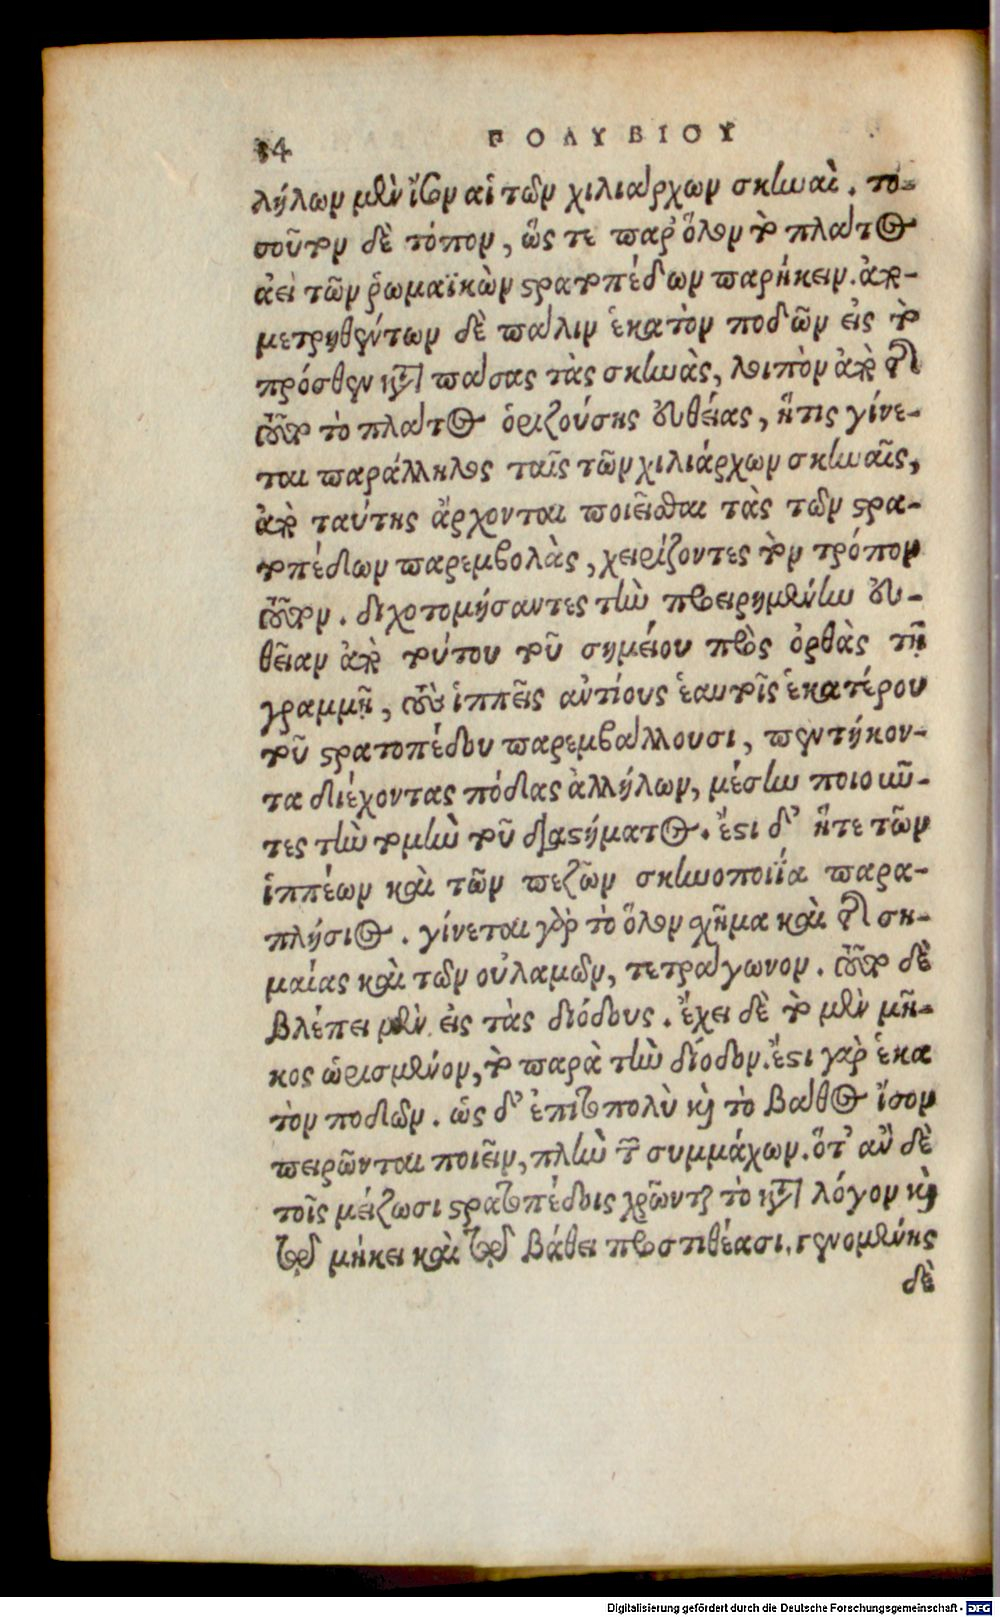 34 ΠΟΛΥΒΙΟΥ
λήλων μὲν ἴσον αἱ τῶν χιλιάρχων σκηναὶ. το-
σοῦτον δὲ τόπον, ὥς τε παρ' ὅλον τὸ πλάτος
ἀεὶ τῶν ῥωμαϊκῶν στρατοπέδων παρήκειν. ἀπο-
μετρηθέντων δὲ πάλιν ἑκατὸν ποδῶν εἰς τὸ
πρόσθεν κατὰ πάσας τὰς σκηνὰς, λοιπὸν ἀπὸ τῆς
τοῦτο τὸ πλάτος ὁριζούσης εὐθείας, ἥτις γίνε-
ται παράλληλος ταῖς τῶν χιλιάρχων σκηναῖς,
ἀπὸ ταύτης ἄρχονται ποιεῖσθαι τὰς τῶν στρα-
τοπέδων παρεμβολὰς, χειρίζοντες τὸν τρόπον
τοῦτον. διχοτομήσαντες τὴν προειρημένην εὐ-
θεῖαν ἀπὸ τούτου τοῦ σημείου πρὸς ὀρθὰς τῇ
γραμμῇ, τοὺς ἱππεῖς αὐτίους ἑαυτοῖς ἑκατέρου
τοῦ στρατοπέδου παρεμβάλλουσι, πεντήκον-
τα διέχοντας πόδας ἀλλήλων, μέσην ποιοῦν-
τες τὴν τομὴν τοῦ διαστήματος. ἔστι δ' ἥτε τῶν
ἱππέων καὶ τῶν πεζῶν σκηνοποιΐα παρα-
πλήσιος. γίνεται γὰρ τὸ ὅλον σχῆμα καὶ τῆς ση-
μαίας καὶ τῶν οὐλαμῶν, τετράγωνον. τοῦτο δὲ
βλέπει μὲν εἰς τὰς διόδους. ἔχει δὲ τὸ μὲν μῆ-
κος ὡρισμένον, τὸ παρὰ τὴν δίοδον. ἔστι γὰρ ἑκα
τὸν ποδῶν. ὡς δ' ἐπιτοπολὺ καὶ τὸ βάθος ἴσον
πειρῶνται ποιεῖν, πλὴν τῶν συμμάχων. ὅτ' ἂν δὲ
τοῖς μείζωσι στρατοπέδοις χρῶνται τὸ κατὰ λόγον καὶ
τῷ μήκει καὶ τῷ βάθει προστιθέασι. γενομένης
δὲ
Digitalisierung gefördert durch die Deutsche Forschungsgemeinschaft - DFG